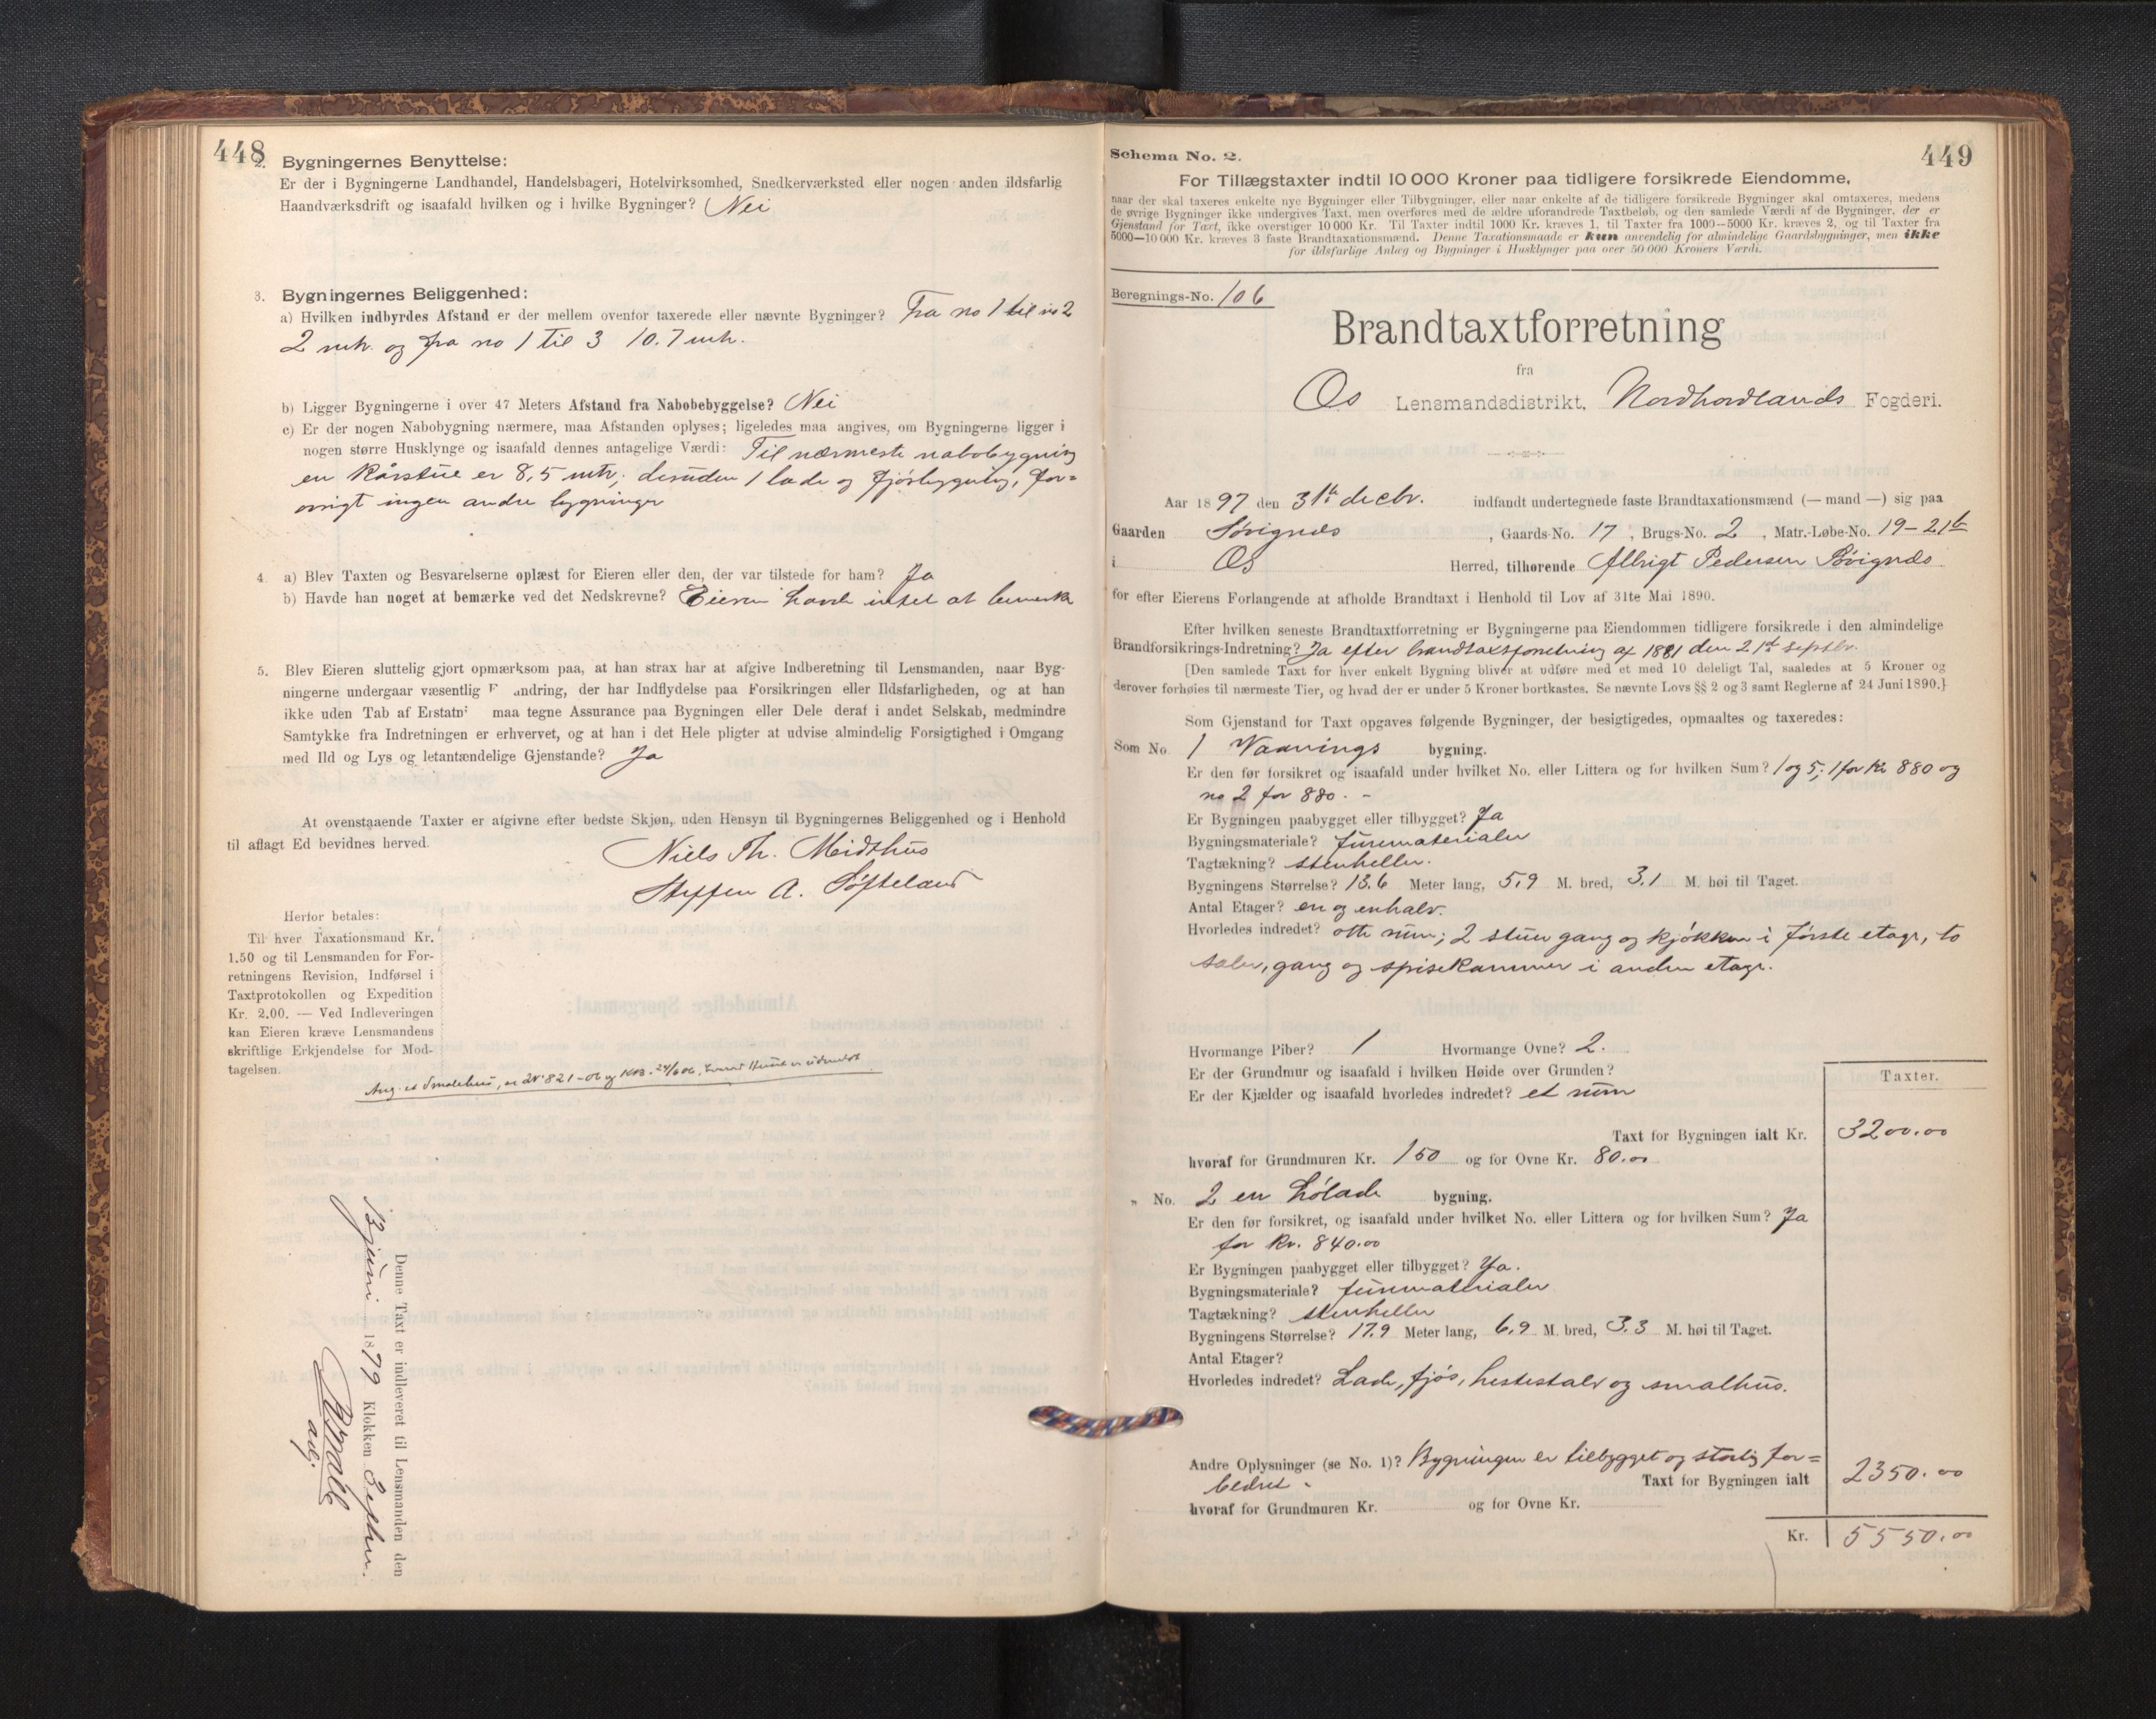 448
2. Bygningernes Benyttelse:
Er der i Bygningerne Landhandel, Handelsbageri, Hotelvirksomhed, Snedkerværksted eller nogen anden ildsfarlig
Haandværksdrift og isaafald hvilken og i hvilke Bygninger? Nei
3. Bygningernes Beliggenhed:
a) Hvilken indbyrdes Afstand er der mellem ovenfor taxerede eller nævnte Bygninger? Fra no 1 til no 2
2 mtr. og fra no 1 til 3 10.7 mtr.
b) Ligger Bygningerne i over 47 Meters Afstand fra Nabobebyggelse? Nei
c) Er der nogen Nabobygning nærmere, maa Afstanden oplyses; ligeledes maa angives, om Bygningerne ligger i
nogen større Husklynge og isaafald dennes antagelige Værdi: Til nærmeste nabobygning
en Kårstue er 8,5 mtr, desuden 1 lade og fjøsbygning, for=
øvrigt ingen andre bygninger
4. a) Blev Taxten og Besvarelserne oplæst for Eieren eller den, der var tilstede for ham? Ja
b) Havde han noget at bemærke ved det Nedskrevne? Eieren havde intet at bemerke
5. Blev Eieren sluttelig gjort opmærksom paa, at han strax har at afgive Indberetning til Lensmanden, naar Byg-
ningerne undergaar væsentlig F andring, der har Indflydelse paa Forsikringen eller Ildsfarligheden, og at han
ikke uden Tab af Erstatni maa tegne Assurance paa Bygningen eller Dele deraf i andet Selskab, medmindre
Samtykke fra Indretningen er erhvervet, og at han i det Hele pligter at udvise almindelig Forsigtighed i Omgang
med Ild og Lys og letantændelige Gjenstande? Ja
At ovenstaaende Taxter er afgivne efter bedste Skjøn, uden Hensyn til Bygningernes Beliggenhed og i Henhold
til aflagt Ed bevidnes herved.
Niels Th. Meidthus
Steffen A. Søfteland
Herfor betales:
Til hver Taxationsmand Kr.
1.50 og til Lensmanden for For-
retningens Revision, Indførsel i
Taxtprotokollen og Expedition
Kr. 2.00. — Ved Indleveringen
kan Eieren kræve Lensmandens
skriftlige Erkjendelse for Mod-
tagelsen.
Ang. et Smalehus, se 821-06
Denne Taxt er indleveret til Lensmanden den
18 Klokken 3 eftm.
449
Schema No. 2.
For Tillægstaxter indtil 10 000 Kroner paa tidligere forsikrede Eiendomme,
naar der skal taxeres enkelte nye Bygninger eller Tilbygninger, eller naar enkelte af de tidligere forsikrede Bygninger skal omtaxeres, medens
de øvrige Bygninger ikke undergives Taxt, men overføres med de ældre uforandrede Taxtbeløb, og den samlede Værdi af de Bygninger, der er
Gjenstand for Taxt, ikke overstiger 10 000 Kr. Til Taxter indtil 1000 Kr. kræves 1, til Taxter fra 1000—5000 Kr. kræves 2, og til Taxter fra
5000—10 000 Kr. kræves 3 faste Brandtaxationsmænd. Denne Taxationsmaade er kun anvendelig for almindelige Gaardsbygninger, men ikke
for ildsfarlige Anlæg og Bygninger i Husklynger paa over 50 000 Kroners Værdi.
Beregnings-No. 106
Brandtaxtforretning
fra
Os Lensmandsdistrikt, Nordhordlands Fogderi.
Aar 1897 den 31te decbr. indfandt undertegnede faste Brandtaxationsmænd (— mand —) sig paa
Gaarden Søvignes, Gaards-No. 17, Brugs-No. 2, Matr.-Løbe-No. 19-21b
i Os Herred, tilhørende Albrigt Pedersen Søvignes
for efter Eierens Forlangende at afholde Brandtaxt i Henhold til Lov af 31te Mai 1890.
Efter hvilken seneste Brandtaxtforretning er Bygningerne paa Eiendommen tidligere forsikrede i den almindelige
Brandforsikrings-Indretning? Ja efter brandtaxtforretning af 1881 den 21st septbr.
[Den samlede Taxt for hver enkelt Bygning bliver at udføre med et med 10 deleligt Tal, saaledes at 5 Kroner og
derover forhøies til nærmeste Tier, og hvad der er under 5 Kroner bortkastes. Se nævnte Lovs §§ 2 og 3 samt Reglerne af 24 Juni 1890.]
Som Gjenstand for Taxt opgaves følgende Bygninger, der besigtigedes, opmaaltes og taxeredes:
Som No. 1 Vaanings bygning.
Er den før forsikret og isaafald under hvilket No. eller Littera og for hvilken Sum? 1 og 5; 1 for Kr 880 og
no 2 for 880.-
Er Bygningen paabygget eller tilbygget? Ja
Bygningsmateriale? furematerialer
Tagtækning? stenheller.
Bygningens Størrelse? 13.6 Meter lang, 5,9 M. bred, 3.1 M. høi til Taget.
Antal Etager? en og enhalv.
Hvorledes indredet? otte rum; 2 stuer gang og kjøkken i første etage, to
saler, gang og spisekammer i anden etage.
Hvormange Piber? 1 Hvormange Ovne? 2.
Er der Grundmur og isaafald i hvilken Høide over Grunden?
Er der Kjælder og isaafald hvorledes indredet? et rum
Taxter.
Taxt for Bygningen ialt Kr. 3200.00
hvoraf for Grundmuren Kr. 150 og for Ovne Kr. 80.00
" No. 2 en Høladebygning.
Er den før forsikret, og isaafald under hvilket No. eller Littera og for hvilken Sum? Ja
for Kr. 840.00
Er Bygningen paabygget eller tilbygget? Ja.
Bygningsmateriale? furematerialer
Tagtækning? stenheller
Bygningens Størrelse? 17.9 Meter lang, 6,9 M. bred, 3.3 M. høi til Taget.
Antal Etager?
Hvorledes indredet? Lade, fjøs, hestestald og smalhus.
Andre Oplysninger (se No. 1)? Bygningen er tilbygget og storlig for=
bedret.
Taxt for Bygningen ialt 2350.00
hvoraf for Grundmuren Kr. og for Ovne Kr.
Kr. 5550.00